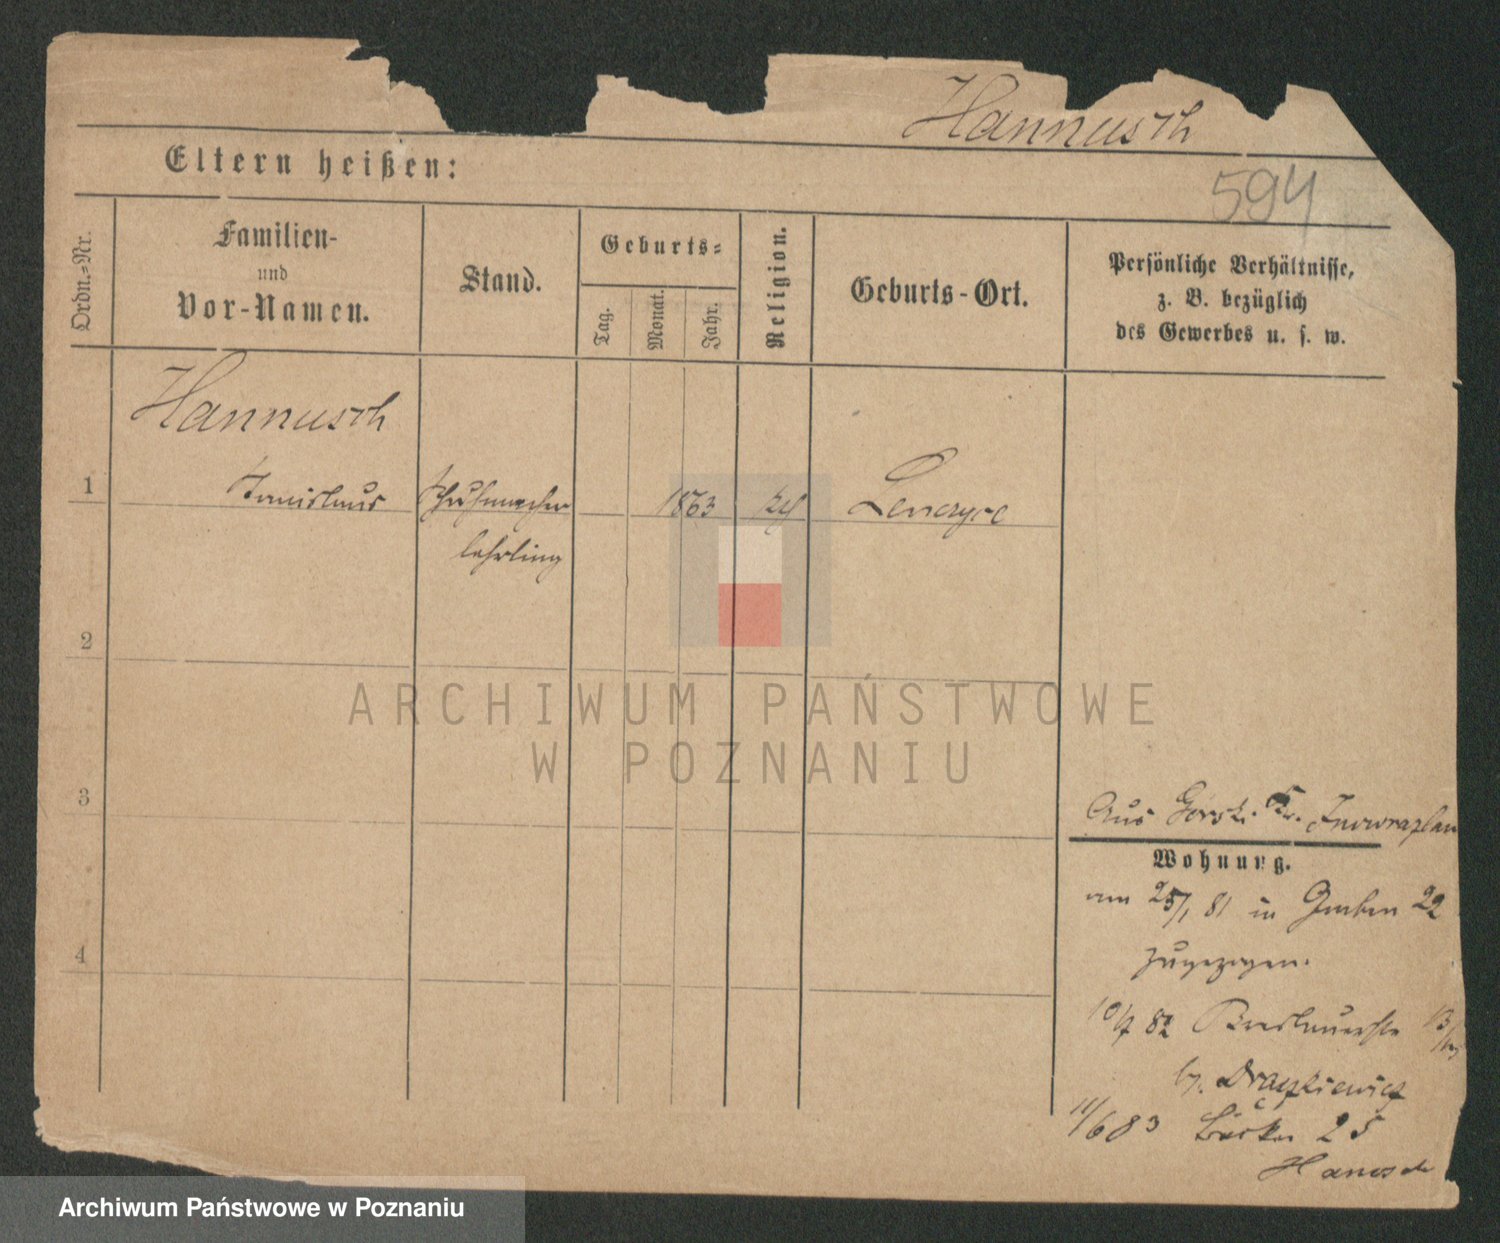 Hannusch
Eltern heißen:
594
Ordn.=Nr.
Familien-
und
Vor-Namen.
Stand.
Geburts=
Tag.
Monat.
Jahr.
Religion.
Geburts-Ort.
Persönliche Verhältnisse,
z. B. bezüglich
des Gewerbes u. s. w.
Hannusch
1 Stanislaus Schuhmacher 1863 Lenayce
lehrling
2
ARCHIWUM PAŃSTWOWE
W POZNANIU
3
Aus Gorski Kr. Inowrazlaw
Wohnung.
am 25/1 81 in Graben 22
zugezogen.
4
10/7 82 Breslauerstr 13/
by. Drążkiewicz
11/6 83 Bäcker 25
Hanusch
Archiwum Państwowe w Poznaniu